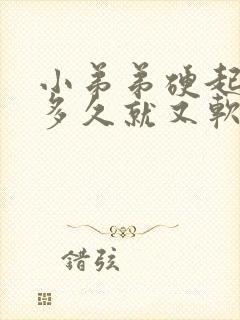 小弟弟硬起
多久就又軟
錯弦